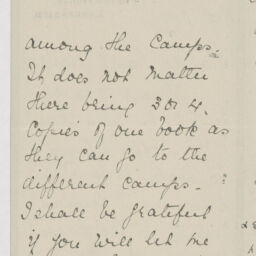 among the Camps.
It does not matter
there being 3 or 4.
Copies of one book as
they can go to the
different camps.
I shall be grateful
if you will let me